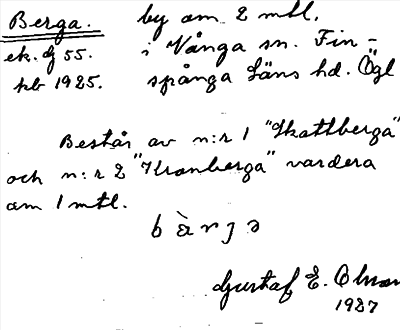 Berga. by om 2 mtl.
ek. dj 55. i Vånga sn. Fin-
hb 1925. spånga läns hd. Ögl
Består av n:r 1 "Skattberga"
och n:r 2 "Kronberga" vardera
om 1 mtl.
bàrjə
Gustaf E. Olsson
1927